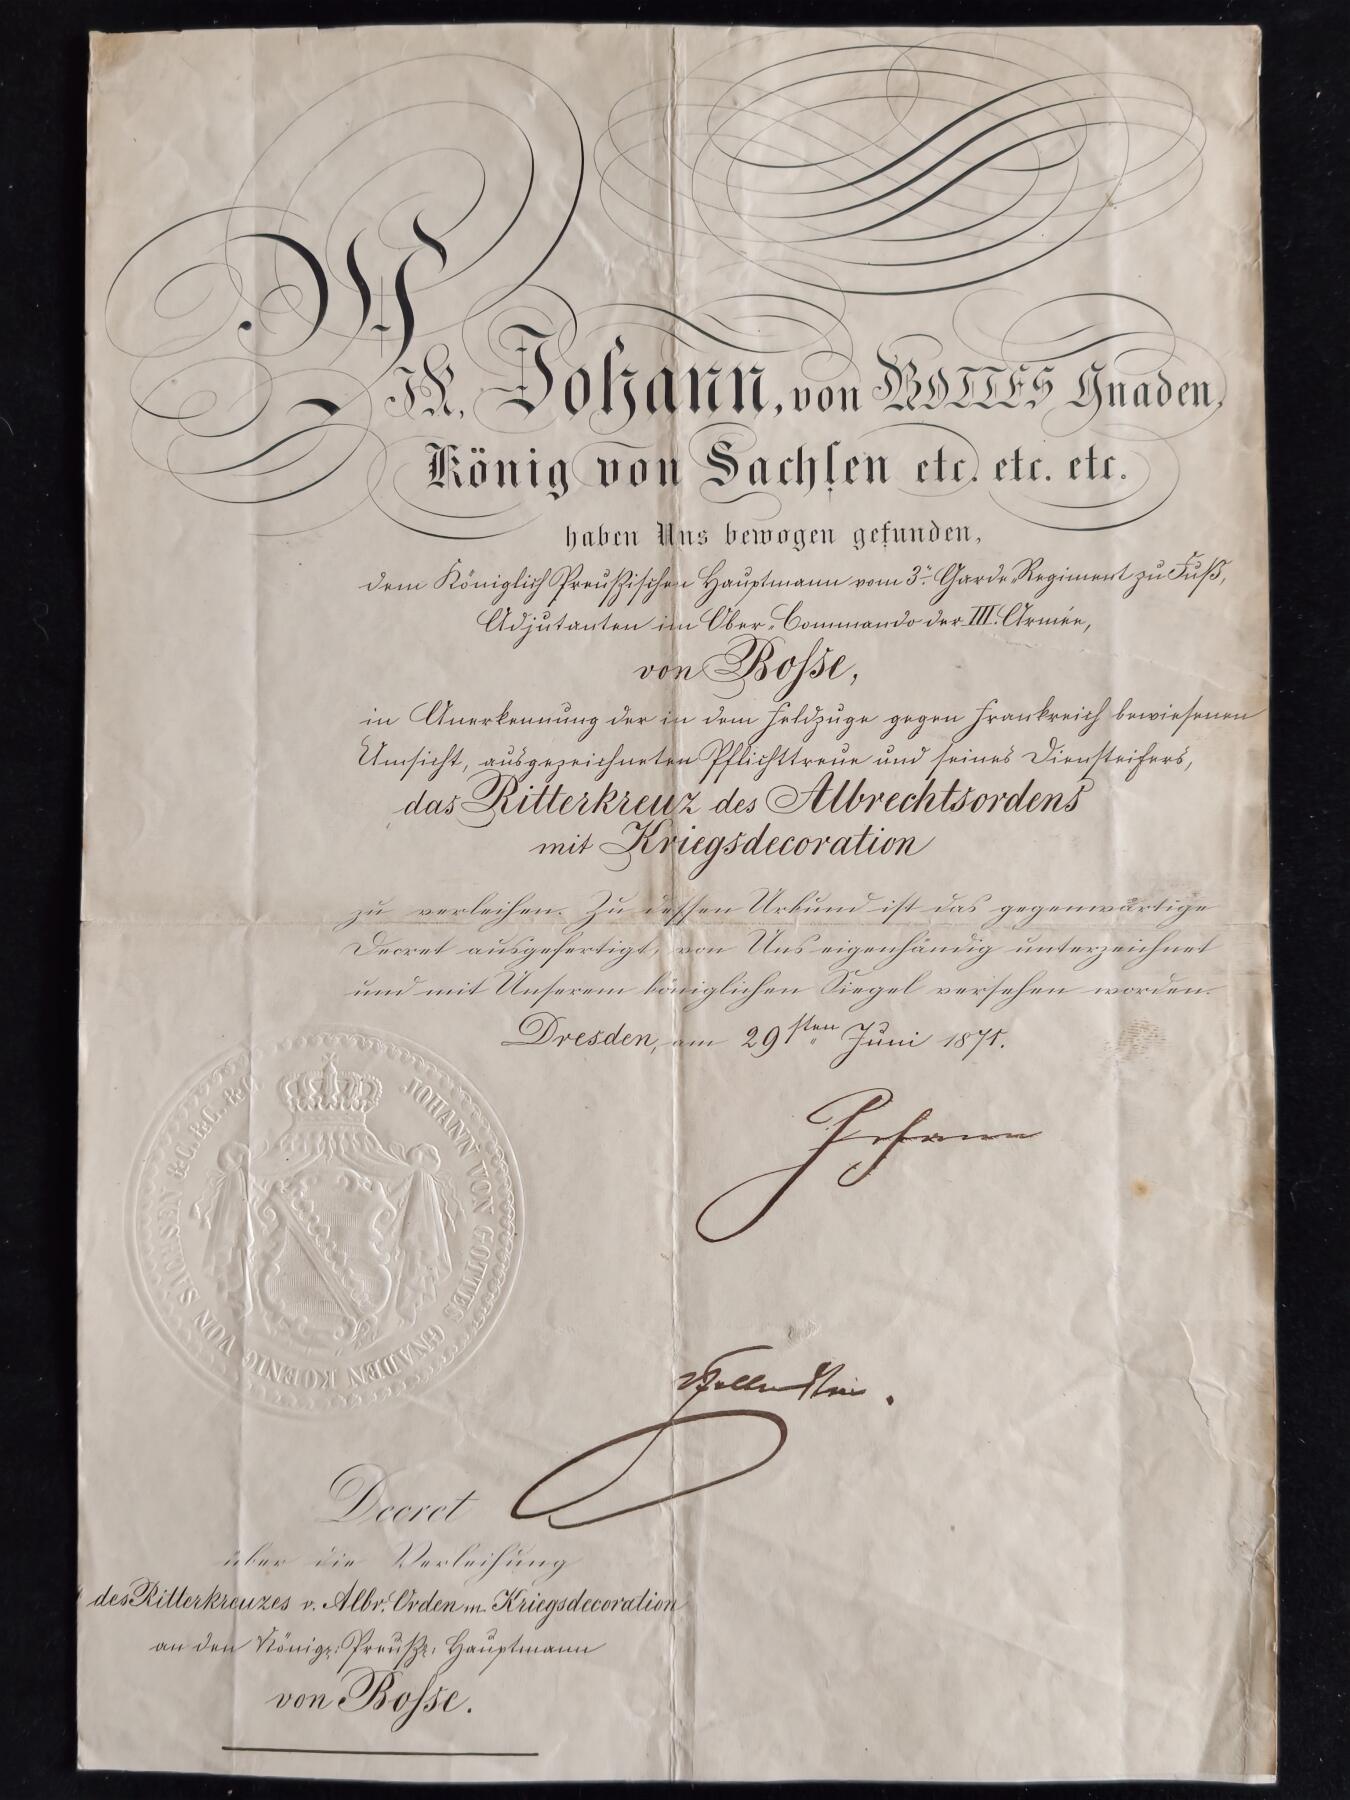 WIR, Johann, von GOTTES Gnaden,
König von Sachsen etc. etc. etc.
haben Uns bewogen gefunden,
dem Königlich Preußischen Hauptmann vom 3ⁿ Garde-Regiment zu Fuß,
Adjutanten im Ober-Commando der III. Armée,
von Bosse,
in Anerkennung der in dem Feldzuge gegen Frankreich bewiesenen
Umsicht, ausgezeichneten Pflichttreue und seines Diensteifers,
das Ritterkreuz des Albrechtsordens
mit Kriegsdecoration
zu verleihen. Zu dessen Urkund ist das gegenwärtige
Decret ausgefertigt, von Uns eigenhändig unterzeichnet
und mit Unserem königlichen Siegel versehen worden.
Dresden, am 29sten Juni 1871.
JOHANN VON GOTTES GNADEN KOENIG VON SACHSEN &C. &C. &C.
Johann
Decret
über die Verleihung
des Ritterkreuzes v. Albr. Orden m. Kriegsdecoration
an den Königl: Preuß: Hauptmann
von Bosse.